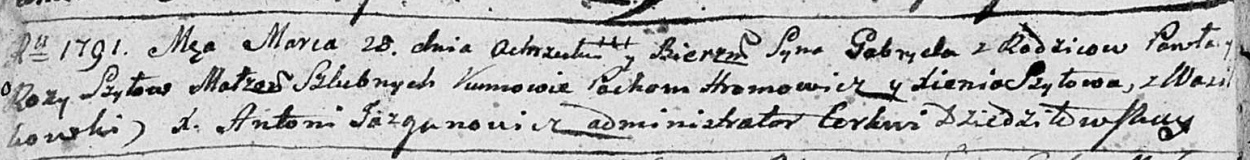 Rᵘ 1791. Mca Marca 28. dnia Ochrzcilem y Bierzm Syna Gabryela z Rodzicow Pawła y
Rozy Szytow Małżeń Szlubnych Kumowie Pachom Hromowicz y Xienia Szytowa, z Wasil
kowski) X. Antoni Jazgunowicz administrator Cerkwi